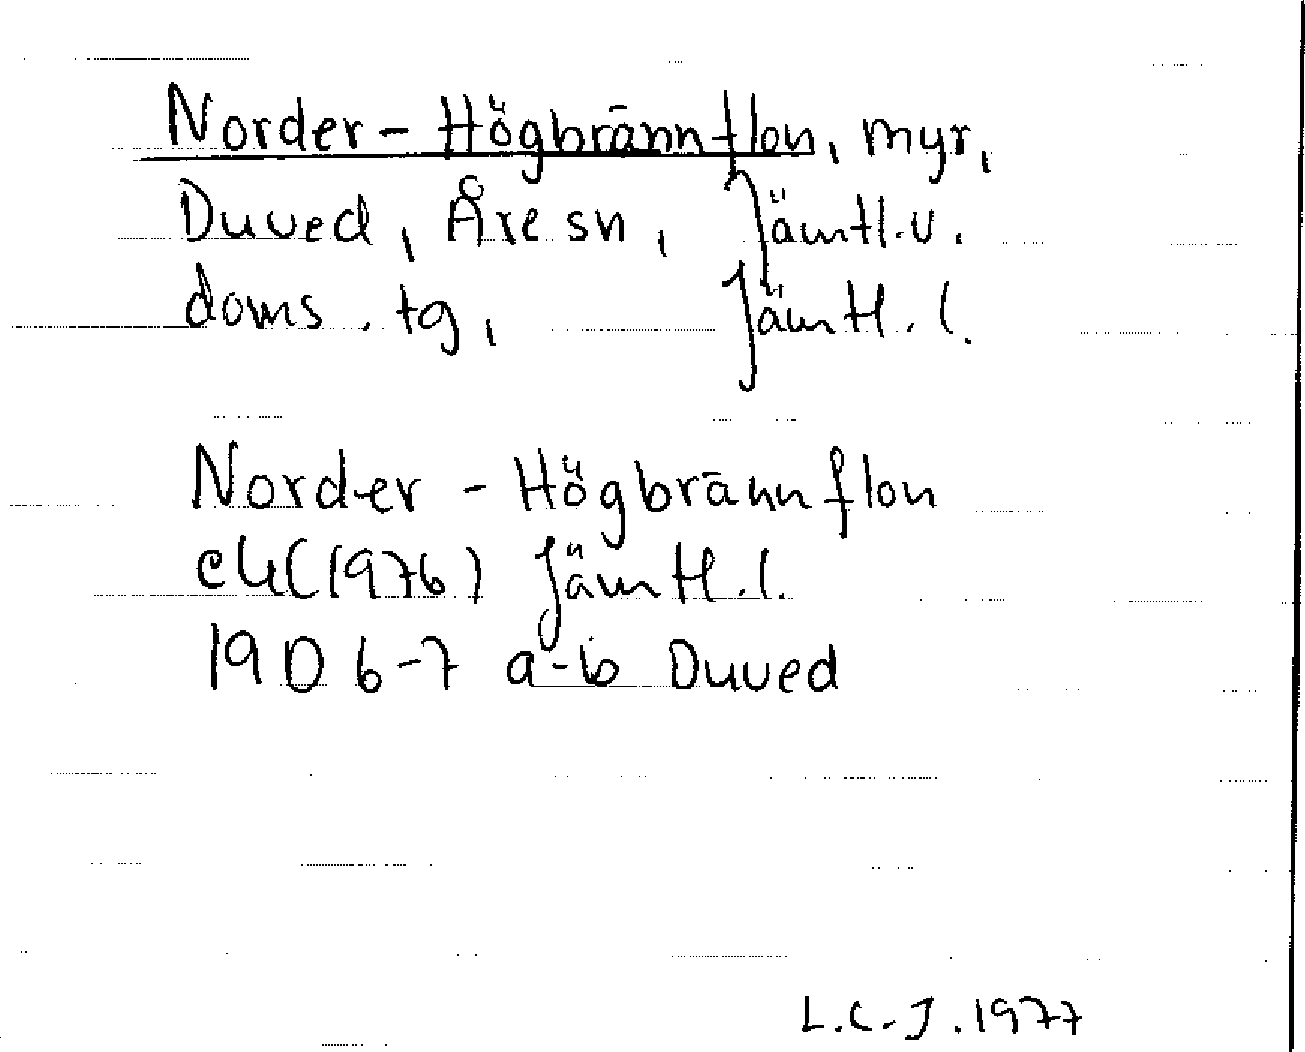 Norder-Högbrännflon, myr,
Duved, Åre sn, Jämtl.v.
doms. tg, Jämtl. l.
Norder-Högbrännflon
ek (1976) Jämtl.l.
19D 6-7 a-b Duved
L.C-J. 1977